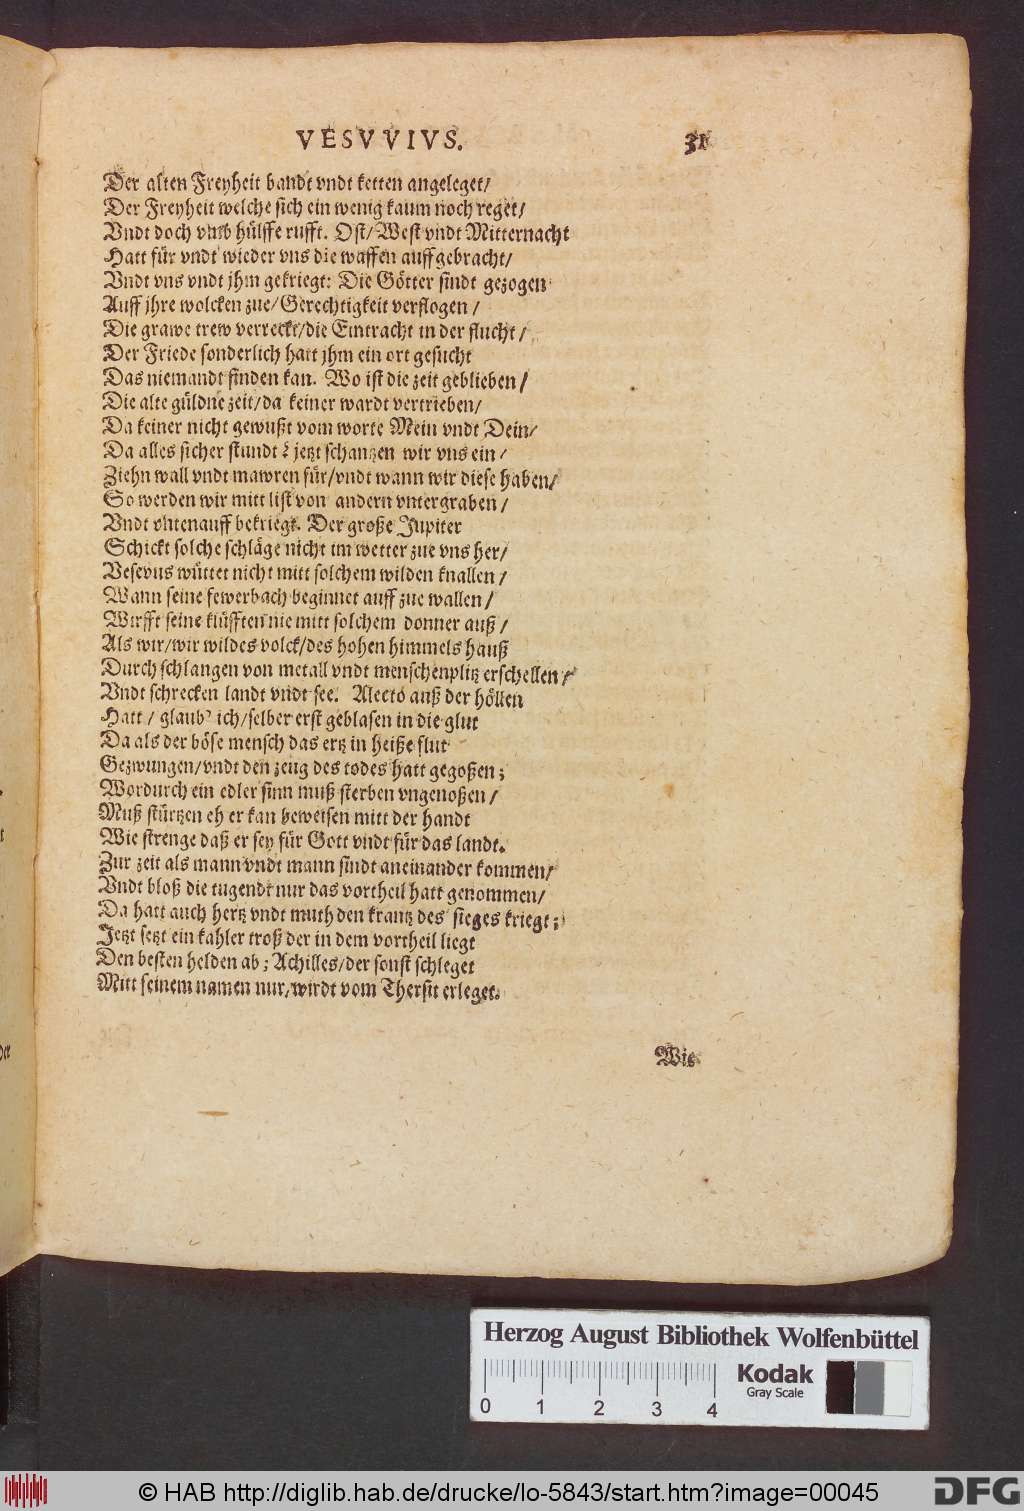 VESVVIVS. 31
Der alten Freyheit bandt vndt ketten angeleget/
Der Freyheit welche sich ein wenig kaum noch reget/
Vndt doch vmb hülffe rufft. Ost/ West vndt Mitternacht
Hatt für vndt wieder vns die waffen auffgebracht/
Vndt vns vndt jhm gekriegt: Die Götter sindt gezogen
Auff jhre wolcken zue/ Gerechtigkeit verflogen/
Die grawe trew verreckt/ die Eintracht in der flucht/
Der Friede sonderlich hatt jhm ein ort gesucht
Das niemandt finden kan. Wo ist die zeit geblieben/
Die alte güldne zeit/ da keiner wardt vertrieben/
Da keiner nicht gewußt vom worte Mein vndt Dein/
Da alles sicher stundt? jetzt schantzen wir vns ein/
Ziehn wall vndt mawren für/ vndt wann wir diese haben/
So werden wir mitt list von andern vntergraben/
Vndt vntenauff bekriegt. Der große Jupiter
Schickt solche schläge nicht im wetter zue vns her/
Vesevus wüttet nicht mitt solchem wilden knallen/
Wann seine fewerbach beginnet auff zue wallen/
Wirfft seine klüfften nie mitt solchem donner auß/
Als wir/ wir wildes volck/ des hohen himmels hauß
Durch schlangen von metall vndt menschenplitz erschellen/
Vndt schrecken landt vndt see. Alecto auß der höllen
Hatt/ glaub' ich/ selber erst geblasen in die glut
Da als der böse mensch das ertz in heiße flut
Gezwungen/ vndt den zeug des todes hatt gegoßen;
Wordurch ein edler sinn muß sterben vngenoßen/
Muß stürtzen eh er kan beweisen mitt der handt
Wie strenge daß er sey für Gott vndt für das landt.
Zur zeit als mann vndt mann sindt aneinander kommen/
Vndt bloß die tugendt nur das vortheil hatt genommen/
Da hatt auch hertz vndt muth den krantz des sieges kriegt;
Jetzt setzt ein kahler troß der in dem vortheil liegt
Den besten helden ab; Achilles/ der sonst schleget
Mitt seinem namen nur/ wirdt vom Thersit erleget.
Wie
Herzog August Bibliothek Wolfenbüttel
0 1 2 3 4
Kodak
Gray Scale
© HAB http://diglib.hab.de/drucke/lo-5843/start.htm?image=00045
DFG